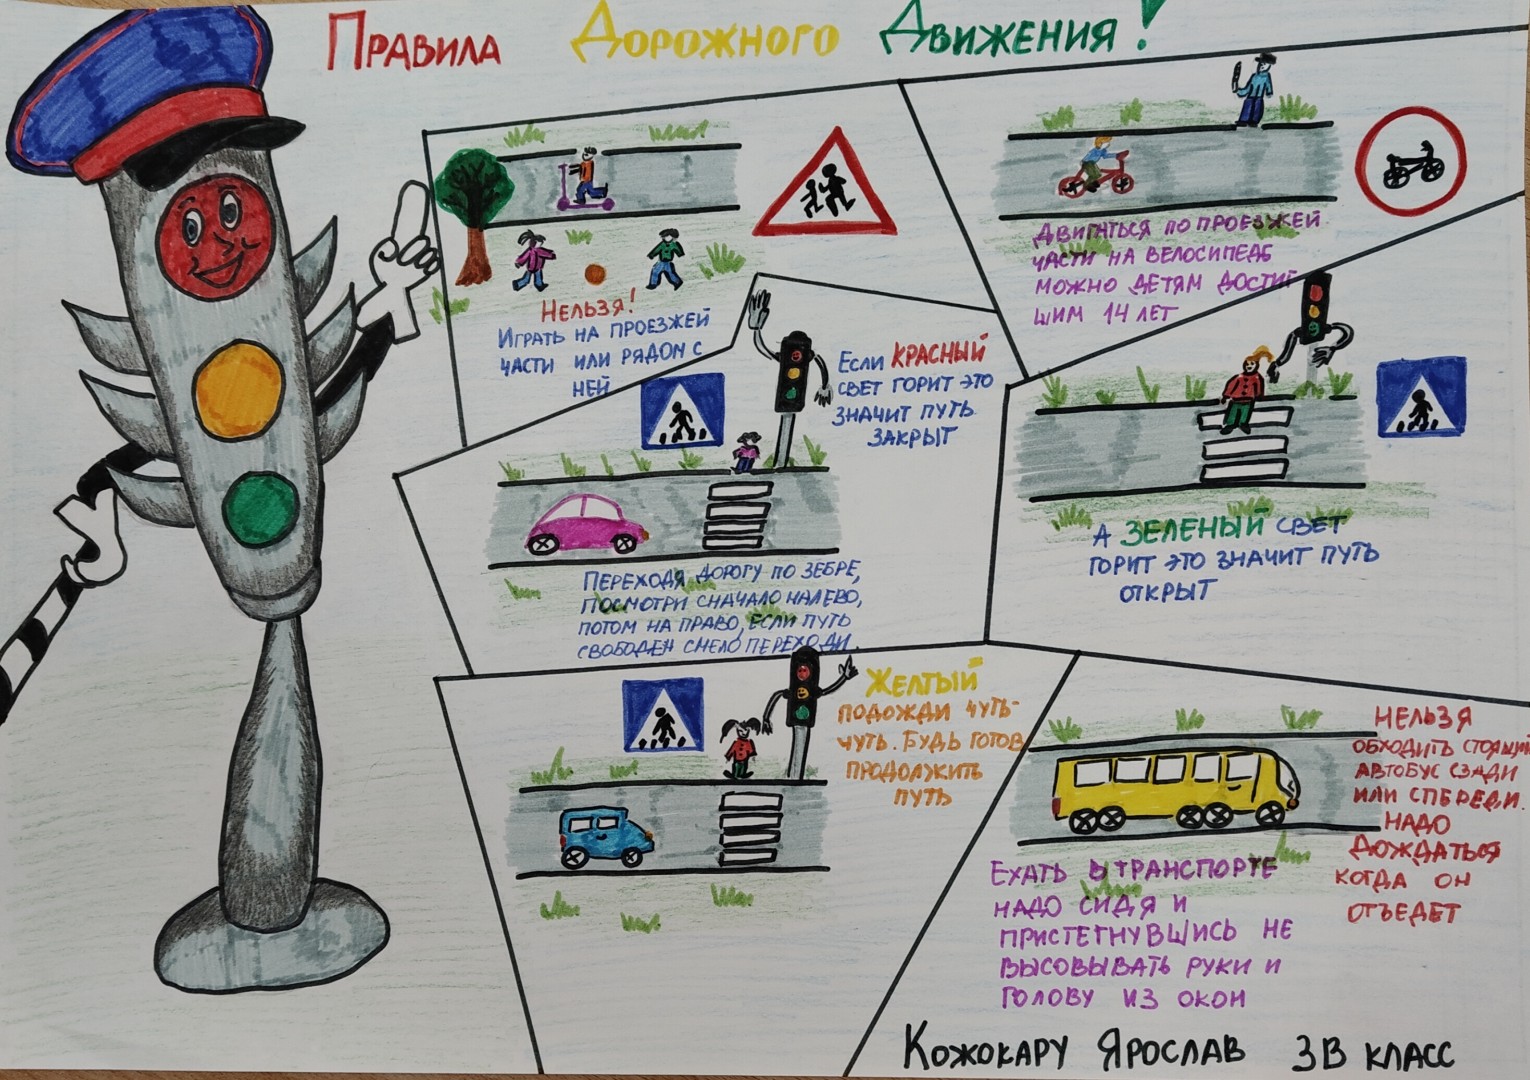 Правила Дорожного Движения!
Нельзя!
Играть на проезжей
части или рядом с
ней
Двигаться по проезжей
части на велосипеде
можно детям достиг
шим 14 лет
Если красный
свет горит это
значит путь
закрыт
Переходя дорогу по зебре,
посмотри сначало налево,
потом на право, если путь
свободен смело переходи.
А зеленый свет
горит это значит путь
открыт
Желтый
подожди чуть-
чуть. Будь готов
продолжить
путь
Нельзя
обходить стоящий
автобус сзади
или спереди.
Надо
дождаться
когда он
отъедет
Ехать в транспорте
надо сидя и
пристегнувшись не
высовывать руки и
голову из окон
Кожокару Ярослав 3В класс